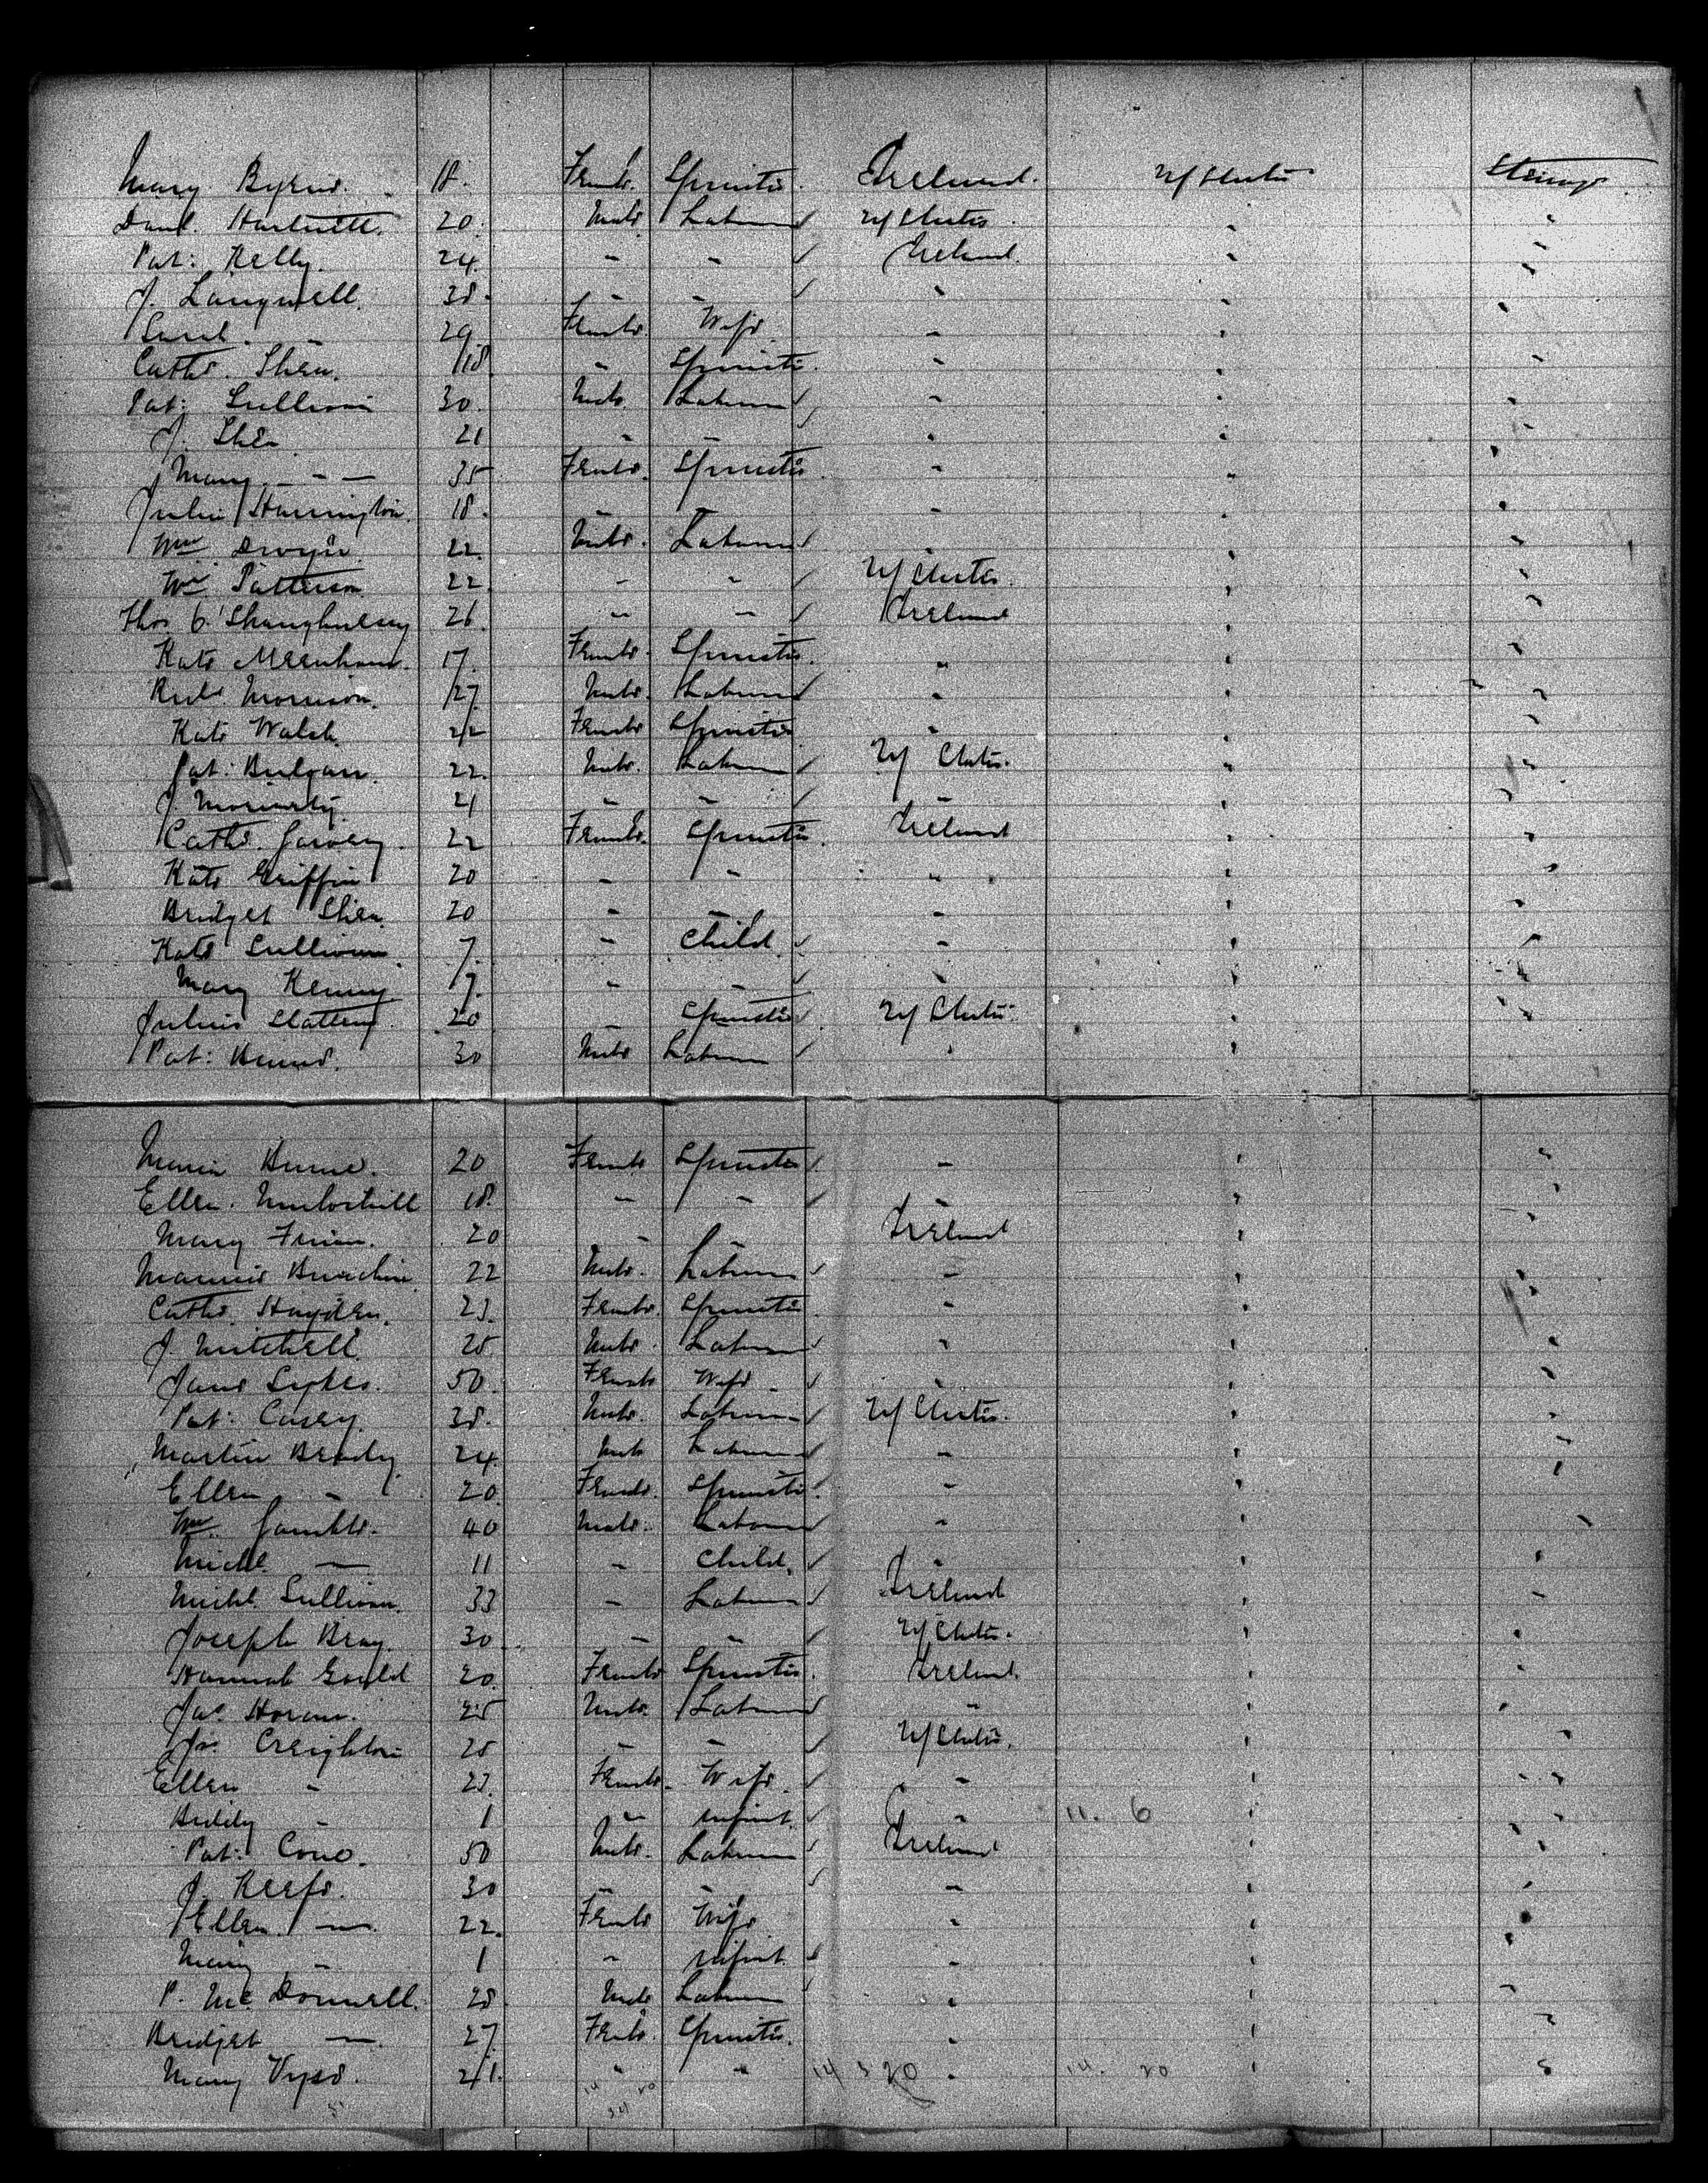 Mary Byrne. 18. Female Spinster. Ireland. U/States Steerage
Danl. Hartnett. 20. Male Laborer U/States " "
Pat: Kelly. 24. " " Ireland. " "
J. Langwell. 38. " " " " "
29 Female. Wife. " " "
Cathe. Shea. 18 " Spinster. " " "
Pat: Sullivan 30. Male. Laborer " " "
J. Shea 21 " " " " "
Mary — 35 Female. Spinster. " " "
Julia Harrington. 18. " "
Wm Dwyer 22. Male. Laborer " " "
Wm Patterson. 22 " " U/States. " "
Thos O'Shaughnessy 26. " " Ireland " "
Kate Meenhan. 17. Female. Spinster. " " "
Morrison. 27 Male. Laborer " " "
Kate Walsh. 22 Female Spinster " " "
Pat: 22. Male. Laborer U/States. " "
J. Moriarty. 21 " " " " "
Cathe. Garvey. 22 Female. Spinster. Ireland " "
Kate Griffin 20 " " " " "
Bridget Shea. 20 " " " " "
Kate Sullivan. 7. " Child " " "
Mary Kenny 17. " " " " "
Slattery. 20 " Spinster U/States " "
Pat: 30 Male Laborer " "
Maria 20 Female Spinster " " "
Ellen 18. " " " "
Mary 20 " " Ireland " "
22 Male. Laborer " " "
Cathe. Hayden. 23. Female. Spinster " " "
J. Mitchell. 25 Male. Laborer " " "
Jane Sykes. 50. Female Wife " " "
Pat: Casey. 38. Male. Laborer U/States. " "
Martin Brady. 24. Male Laborer " " "
Ellen " 20. Female. Spinster. " " "
Wm. Gamble. 40 Male. Laborer " " "
Michl. — 11 " Child. " " "
Michl. Sullivan. 33 " Laborer Ireland " "
Joseph Bray. 30 " " U/States. " "
Hannah Gould 20. Female Spinster. Ireland. " "
Jas Horan. 25 Male. Laborer " " "
Jas. Creighton 25 " " U/States. " "
Ellen " 23. Female. Wife. " " "
Biddy " 1 " Infant. " 11. 6 " "
Pat: Cone. 50 Male. Laborer Ireland " "
J. Keefe. 30 " " " " "
Ellen. — 22. Female Wife " " "
Mary " 1 " Infant. " " "
P. McDonnell. 28 Male Laborer " " "
Bridget — 27. Female. Spinster. " " "
Mary 21. " " " " "